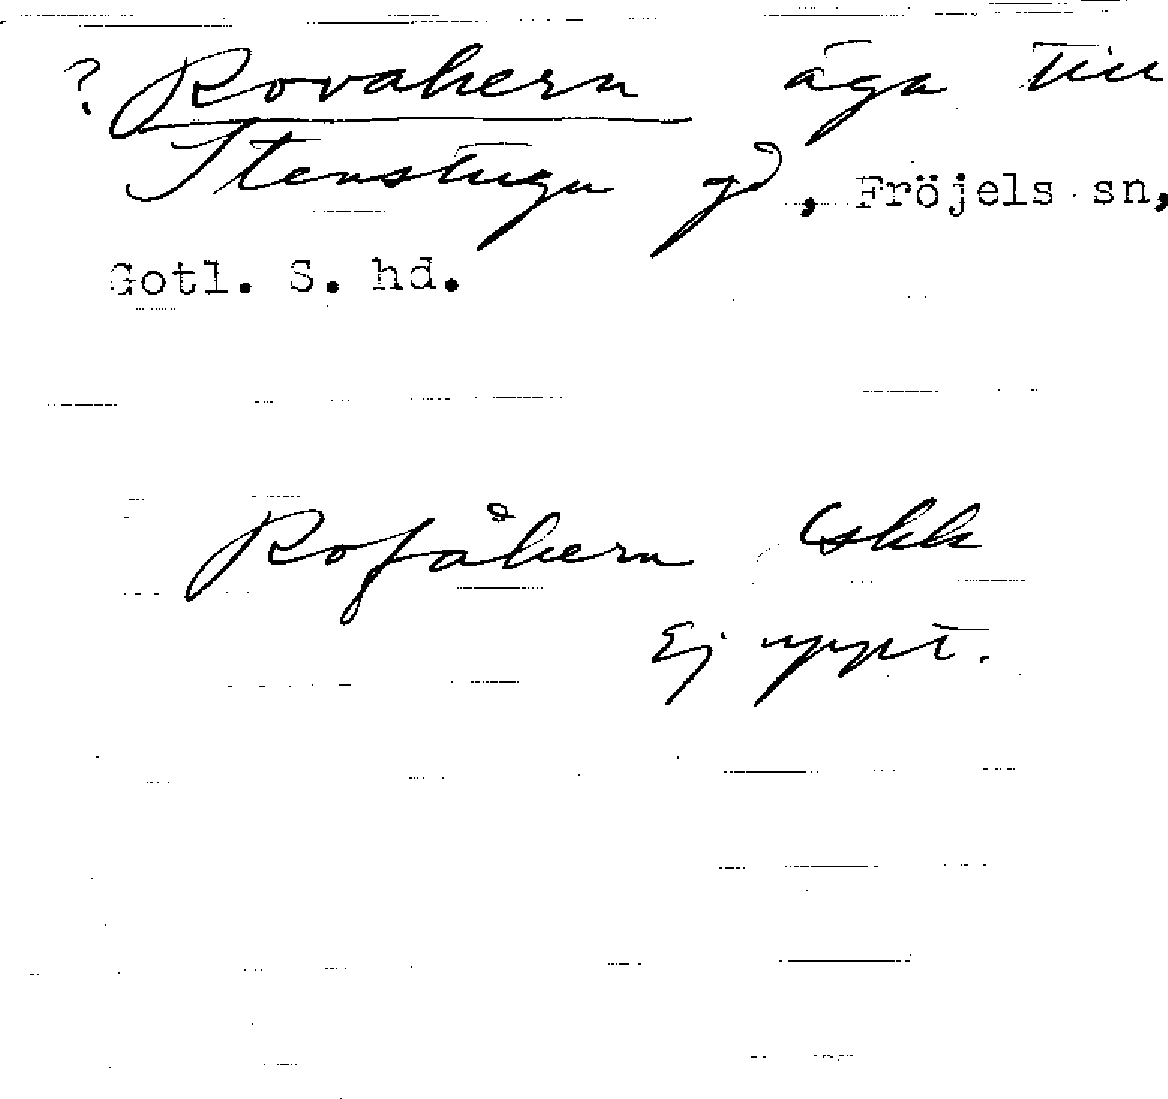 ? Rovakern äga till
Stenstugu gd, Fröjels sn,
Gotl. S. hd.
Rofåkern Cskk
Ej uppt.